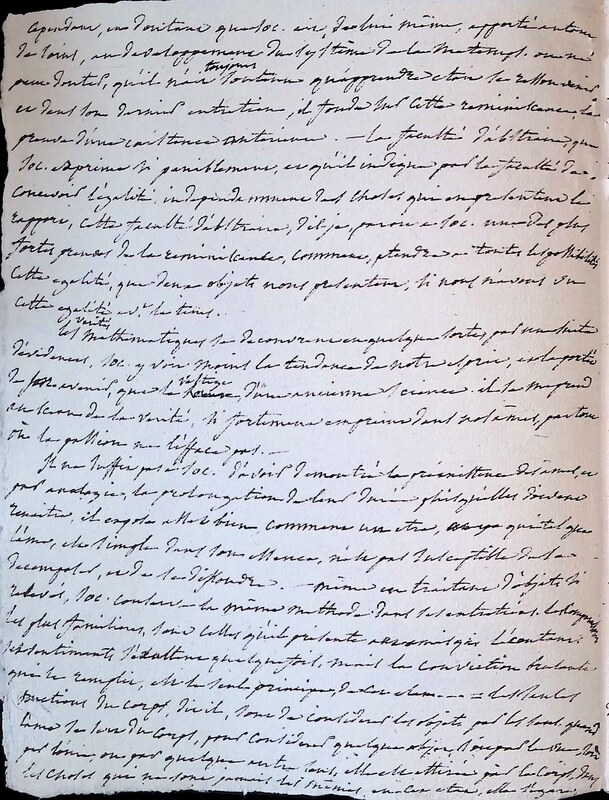 Cependant, en doutant que Soc. ait, de lui même, apporté autant
de soins, au développement du système de la Métemps. on ne
peut douter, qu'il n'ait toujours soutenu qu'apprendre etoit se ressouvenir
et dans son dernier entretien, il fonde sur cette reminiscence, la
preuve d'une existence antérieure. — la faculté d'abstraire, que
Soc. exprime si paisiblement, et qu'il indique par la faculté de
concevoir l'égalité, independamment des choses qui en présentent le
rapport, cette faculté d'abstraire, dis-je, paroit a Soc. une des plus
fortes preuves de la reminiscence, comment, etendre a toutes les possibilités
cette egalité, que deux objets nous presentent, si nous n'avons vu
cette egalité av.t les sens.
les vérités mathématiques se decouvrent en quelque sorte, par une suite
d'évidences, Soc. y voit moins la tendance de notre esprit, et la portée
de son avenir, que le vestige d'une ancienne science. il se méprend
au sceau de la verité, si fortement empreint dans nos âmes, partout
où la passion ne l'efface pas. —
Il ne suffit pas a Soc. d'avoir demontré la préexistence des âmes, et
par analogie, la prolongation de leur durée puisqu'elles doivent
renaitre, il expose assez bien, comment un etre, tel que
l'âme, etc simple dans son essence, n'est pas susceptible de se
decomposer, et de se dissoudre. — même en traitant d'objets si
relevés, Soc. conserve la même methode dans ses entretiens. les comparaisons
les plus familières, sont celles qu'il presente a ses amis qui l'ecoutent.
ses sentiments s'exaltent quelquefois, mais la conviction brulante
qui le remplit, est le seul principe de ces elans. — = les seules
fonctions du corps, dit-il, sont de considerer les objets par les sens, quand
l'âme se sert du corps, pour considerer quelque objet, soit par la vue, soit
par l'ouie, ou par quelque autre sens, elle est attirée par le corps, vers
les choses qui ne sont jamais les mêmes, en cet etat, elle s'egare,